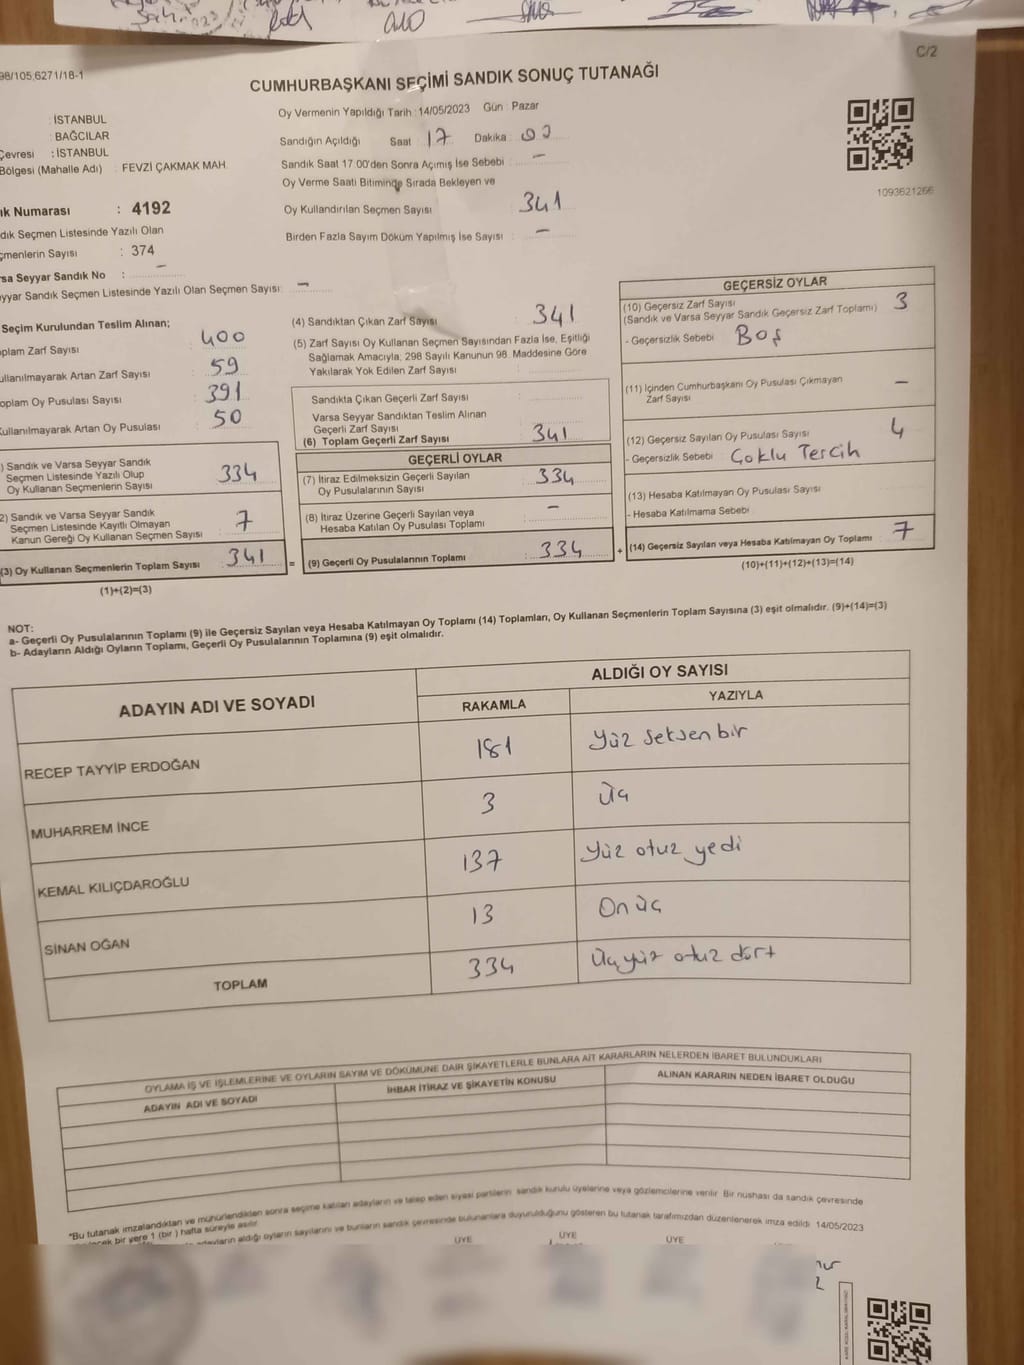 98/105.6271/18-1
C/2
CUMHURBAŞKANI SEÇİMİ SANDIK SONUÇ TUTANAĞI
Oy Vermenin Yapıldığı Tarih : 14/05/2023 Gün : Pazar
: İSTANBUL
: BAĞCILAR
Çevresi : İSTANBUL
Bölgesi (Mahalle Adı) : FEVZİ ÇAKMAK MAH.
Sandığın Açıldığı Saat 17 Dakika :
Sandık Saat 17 00'den Sonra Açımış İse Sebebi : -
Oy Verme Saati Bitiminde Sırada Bekleyen ve
Oy Kullandırılan Seçmen Sayısı : 341
Birden Fazla Sayım Döküm Yapılmış İse Sayısı : -
1093621266
ık Numarası : 4192
dık Seçmen Listesinde Yazılı Olan
çmenlerin Sayısı : 374
rsa Seyyar Sandık No : -
eyyar Sandık Seçmen Listesinde Yazılı Olan Seçmen Sayısı: -
Seçim Kurulundan Teslim Alınan;
oplam Zarf Sayısı : 400
ullanılmayarak Artan Zarf Sayısı : 59
oplam Oy Pusulası Sayısı : 391
Kullanılmayarak Artan Oy Pusulası : 50
) Sandık ve Varsa Seyyar Sandık
Seçmen Listesinde Yazılı Olup
Oy Kullanan Seçmenlerin Sayısı : 334
2) Sandık ve Varsa Seyyar Sandık
Seçmen Listesinde Kayıtlı Olmayan
Kanun Gereği Oy Kullanan Seçmen Sayısı : 7
(3) Oy Kullanan Seçmenlerin Toplam Sayısı : 341
(1)+(2)=(3)
(4) Sandıktan Çıkan Zarf Sayısı : 341
(5) Zarf Sayısı Oy Kullanan Seçmen Sayısından Fazla İse, Eşitliği
Sağlamak Amacıyla; 298 Sayılı Kanunun 98. Maddesine Göre
Yakılarak Yok Edilen Zarf Sayısı :
Sandıkta Çıkan Geçerli Zarf Sayısı :
Varsa Seyyar Sandıktan Teslim Alınan
Geçerli Zarf Sayısı :
(6) Toplam Geçerli Zarf Sayısı : 341
=
GEÇERLİ OYLAR
(7) İtiraz Edilmeksizin Geçerli Sayılan
Oy Pusulalarının Sayısı : 334
(8) İtiraz Üzerine Geçerli Sayılan veya
Hesaba Katılan Oy Pusulası Toplamı : -
(9) Geçerli Oy Pusulalarının Toplamı : 334
+
GEÇERSİZ OYLAR
(10) Geçersiz Zarf Sayısı 3
(Sandık ve Varsa Seyyar Sandık Geçersiz Zarf Toplamı)
- Geçersizlik Sebebi : Boş
(11) İçinden Cumhurbaşkanı Oy Pusulası Çıkmayan -
Zarf Sayısı
(12) Geçersiz Sayılan Oy Pusulası Sayısı 4
- Geçersizlik Sebebi : Çoklu Tercih
(13) Hesaba Katılmayan Oy Pusulası Sayısı
- Hesaba Katılmama Sebebi :
(14) Geçersiz Sayılan veya Hesaba Katılmayan Oy Toplamı : 7
(10)+(11)+(12)+(13)=(14)
NOT:
a- Geçerli Oy Pusulalarının Toplamı (9) ile Geçersiz Sayılan veya Hesaba Katılmayan Oy Toplamı (14) Toplamları, Oy Kullanan Seçmenlerin Toplam Sayısına (3) eşit olmalıdır. (9)+(14)=(3)
b- Adayların Aldığı Oyların Toplamı, Geçerli Oy Pusulalarının Toplamına (9) eşit olmalıdır.
ADAYIN ADI VE SOYADI
ALDIĞI OY SAYISI
RAKAMLA YAZIYLA
RECEP TAYYİP ERDOĞAN 181 Yüz seksen bir
MUHARREM İNCE 3 Üç
KEMAL KILIÇDAROĞLU 137 Yüz otuz yedi
SİNAN OĞAN 13 On üç
TOPLAM 334 Üçyüz otuz dört
OYLAMA İŞ VE İŞLEMLERİNE VE OYLARIN SAYIM VE DÖKÜMÜNE DAİR ŞİKAYETLERLE BUNLARA AİT KARARLARIN NELERDEN İBARET BULUNDUKLARI
ADAYIN ADI VE SOYADI
İHBAR İTİRAZ VE ŞİKAYETİN KONUSU
ALINAN KARARIN NEDEN İBARET OLDUĞU
*Bu tutanak imzalandıktan ve mühürlendikten sonra seçime katılan adayların ve talep eden siyasi partilerin sandık kurulu üyelerine veya gözlemcilerine verilir. Bir nüshası da sandık çevresinde
bir yere 1 (bir) hafta süreyle asılır.
adayların aldığı oyların sayılarını ve bunların sandık çevresinde bulunanlara duyurulduğunu gösteren bu tutanak tarafımızdan düzenlenerek imza edildi. 14/05/2023
ÜYE ÜYE ÜYE